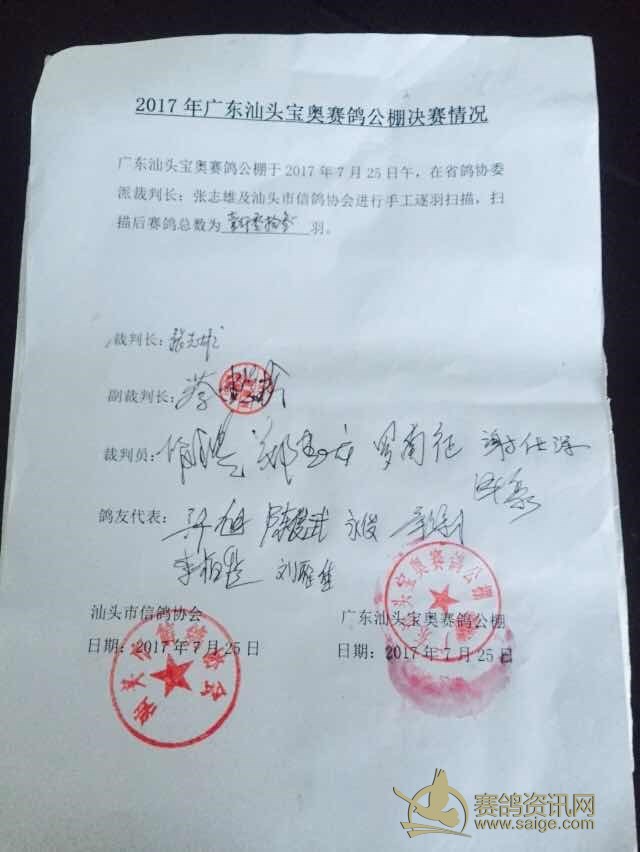 2017年广东汕头宝奥赛鸽公棚决赛情况
广东汕头宝奥赛鸽公棚于2017年7月25日午，在省鸽协委
派裁判长：张志雄及汕头市信鸽协会进行手工逐羽扫描，扫
描后赛鸽总数为 羽。
裁判长：张志雄
副裁判长：蔡
裁判员：罗南征 谢仕泽
鸽友代表：
李柏 刘雁佳
汕头市信鸽协会 广东汕头宝奥赛鸽公棚
日期：2017年7月25日 日期：2017年7月25日
广东汕头宝奥赛鸽公棚
赛鸽资讯网
www.saige.com